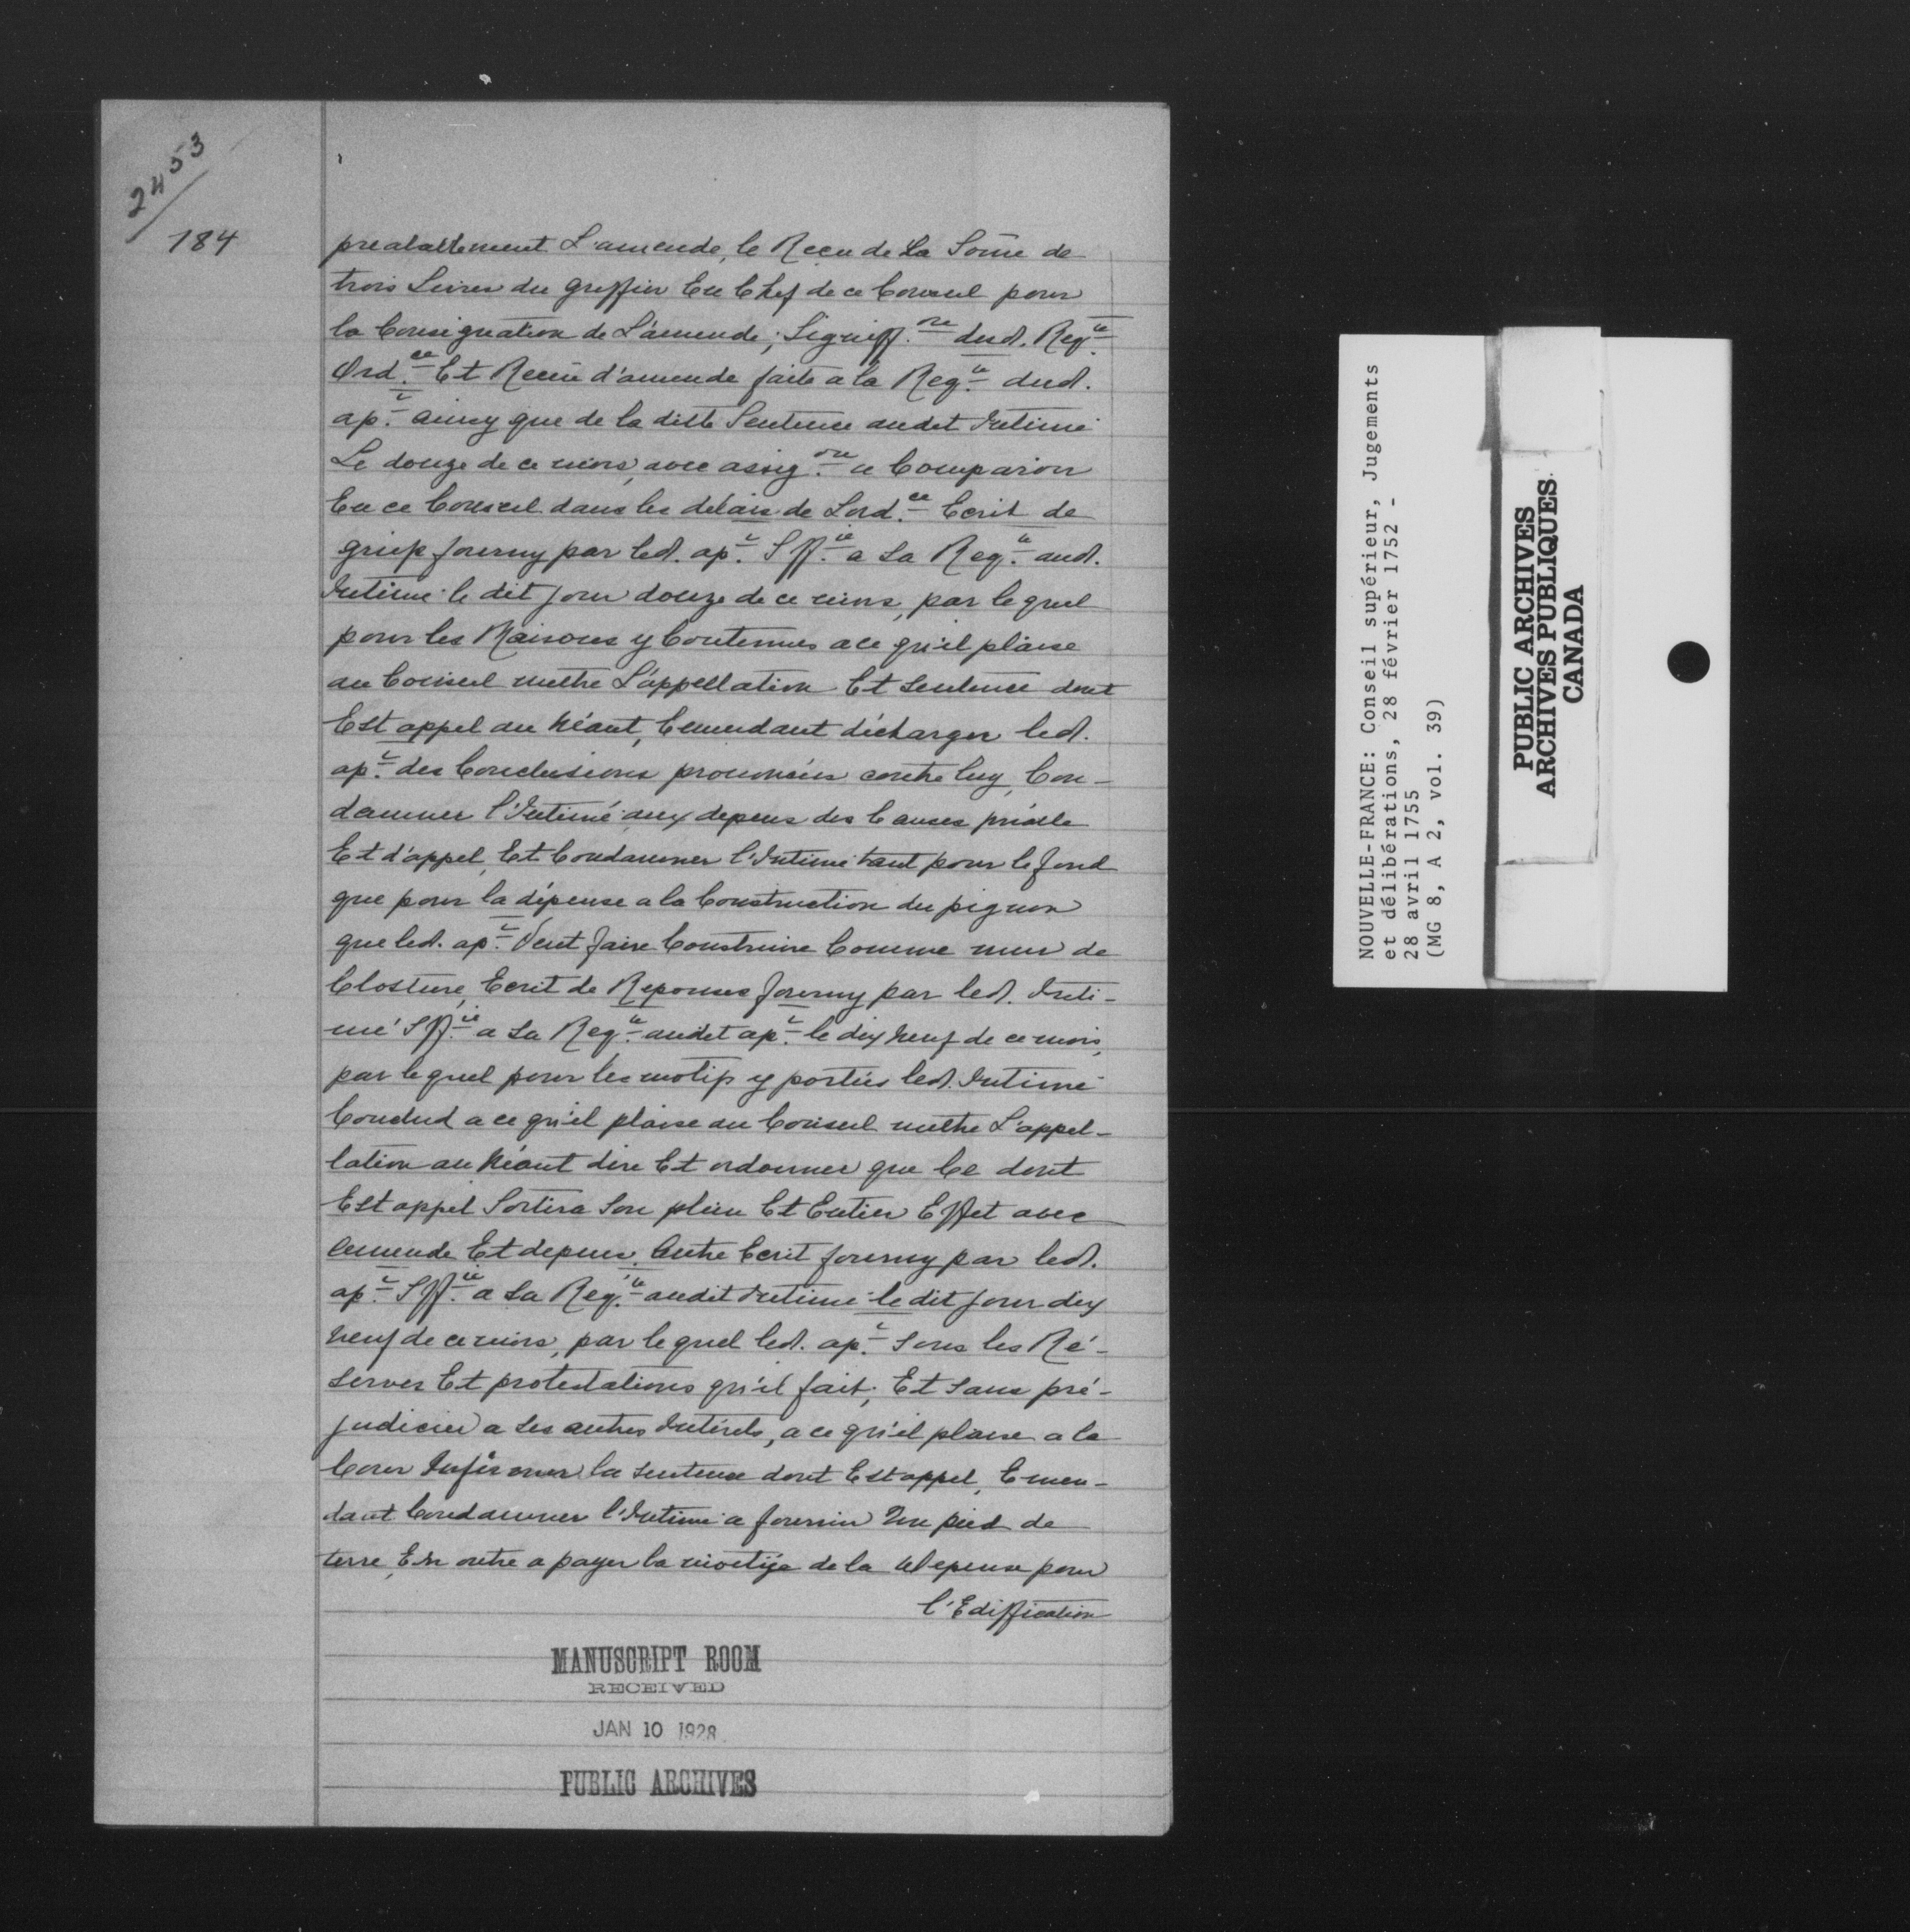 2453
184
prealablement L'amende, le Recu de La Some de
trois Livres du greffier En Chef de ce Conseil pour
la Consignation de L'amende; Signiff.on dud. Reqte
Ord.ce Et Receu d'amende faite a la Reqte dud.
ap.t ainsy que de la ditte Sentence audet Intimé
Le douze de ce mois, avec assig.on a Comparoir
En ce Conseil dans les délais de Lord.ce Ecrit de
griefs fourny par led. ap.t Sff.ié a sa Req.te aud.
Intimé le dit jour douze de ce mois, par le quel
pour les Raisons y Contenues a ce qu'il plaise
au Conseil mettre L'appellation Et sentence dont
Est appel au Néant, Emendant décharger led.
ap.t des Conclusions prononcées contre luy, Con-
damner l'Intimé aux depens des Causes pńalle
Et d'appel, Et Condamner l'Intimé tant pour le fond
que pour la dépense a la Construction du pignon
que led. ap.t Veut faire Construire Comme mur de
Closture, Ecrit de Reponses fourny par led. Inti-
mé Sff.ié a sa Req.te audet ap.t le dix neuf de ce mois,
par le quel pour les motifs y portées led. Intimé
Conclud a ce qu'il plaise au Conseil mettre L'appel-
lation au Néant dire Et ordonner que Ce dont
Est appel Sortira Son plein Et Entier Effet avec
amende Et depens. Autre Ecrit fourny par led.
ap.t Sff.ié a sa Req.te audit Intimé le dit jour dix
neuf de ce mois, par le quel led. ap.t sous les Ré-
serves Et protestations qu'il fait, Et Sans pré-
judicier a ses autres Intérets, a ce qu'il plaise a la
Cour Infirmer la sentence dont Est appel, Emen-
dant Condamner l'Intimé a fournir Un pied de
terre, En outre a payer la moetije de la depense pour
l'Ediffication
MANUSCRIPT ROOM
RECEIVED
JAN 10 1928
PUBLIC ARCHIVES
NOUVELLE-FRANCE: Conseil supérieur, Jugements
et délibérations, 28 février 1752 -
28 avril 1755
(MG 8, A 2, vol. 39)
PUBLIC ARCHIVES
ARCHIVES PUBLIQUES
CANADA